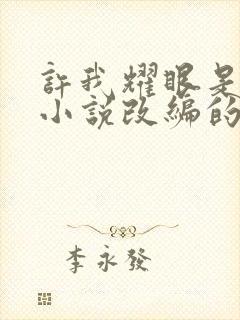 許我耀眼是
小說改編的
李永發